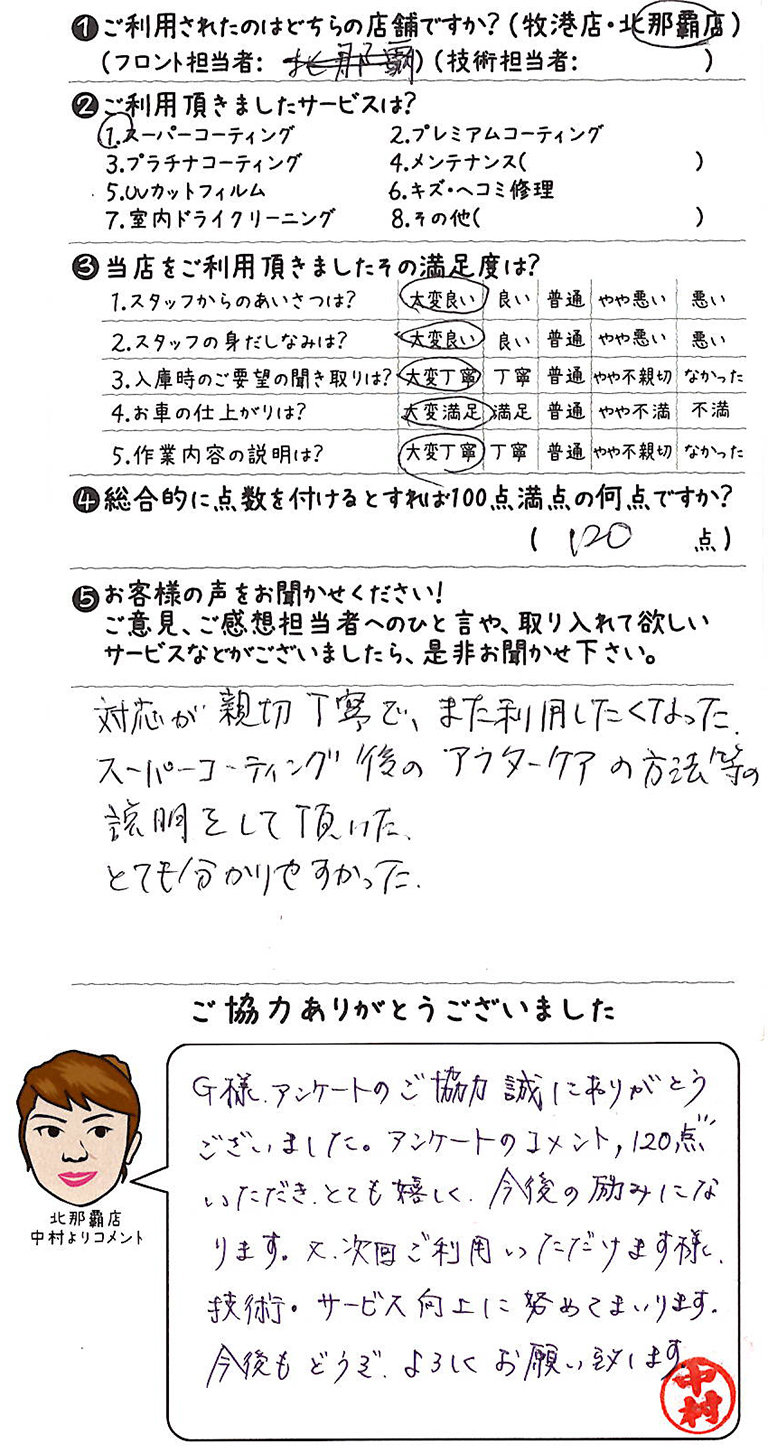 ❶ご利用されたのはどちらの店舗ですか?(牧港店・北那覇店)
(フロント担当者: 北那覇)(技術担当者: )
❷ご利用頂きましたサービスは?
1.スーパーコーティング 2.プレミアムコーティング
3.プラチナコーティング 4.メンテナンス( )
5.UVカットフィルム 6.キズ・ヘコミ修理
7.室内ドライクリーニング 8.その他( )
❸当店をご利用頂きましたその満足度は?
1.スタッフからのあいさつは? 大変良い 良い 普通 やや悪い 悪い
2.スタッフの身だしなみは? 大変良い 良い 普通 やや悪い 悪い
3.入庫時のご要望の聞き取りは? 大変丁寧 丁寧 普通 やや不親切 なかった
4.お車の仕上がりは? 大変満足 満足 普通 やや不満 不満
5.作業内容の説明は? 大変丁寧 丁寧 普通 やや不親切 なかった
❹総合的に点数を付けるとすれば100点満点の何点ですか?
( 120 点)
❺お客様の声をお聞かせください!
ご意見、ご感想担当者へのひと言や、取り入れて欲しい
サービスなどがございましたら、是非お聞かせ下さい。
対応が親切丁寧で、また利用したくなった.
スーパーコーティング後のアフターケアの方法等の
説明をして頂いた.
とても分かりやすかった.
ご協力ありがとうございました
G様、アンケートのご協力誠にありがとう
ございました。アンケートのコメント,120点
いただき、とても嬉しく、今後の励みにな
ります。又、次回ご利用いただけます様、
技術・サービス向上に努めてまいります。
今後もどうぞ、よろしくお願い致します。
中村
北那覇店
中村よりコメント